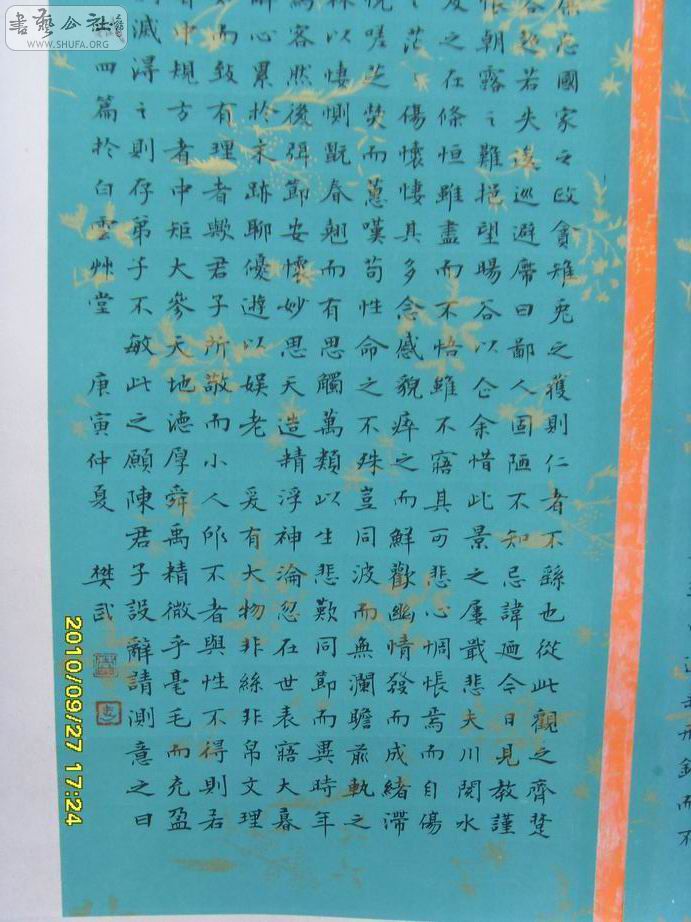 忘國家之政貪雉兔之獲則仁者不繇也從此觀之齊楚
超若失逡巡避席曰鄙人固陋不知忌諱廼今日見教謹
恨朝露之難挹望暘谷以企余惜此景之屢戢悲夫川閱水
之在條恒雖盡而不悟雖不寤其可悲心惆悵焉而自傷
茫〻傷懷悽其多念慼貌瘁之而鮮歡幽情發而成緒滯
悅嗟芝焚而蕙嘆苟性命之不殊豈同波而無瀾瞻前軌之
林以悽惻翫春翹而有思觸萬類以生悲歎同節而異時年
為客然後弭節安懷妙思天造精浮神淪忽在世表寤大暮
解心累於末跡聊優遊以娛老 爰有大物非絲非帛文理
而致有理者歟君子所敬而小人所不者與性不得則若
者中規方者中矩大參天地德厚舜禹精微乎毫毛而充盈
滅得之則存弟子不敏此之願陳君子設辭請測意之曰
四篇於白雲艸堂 庚寅仲夏 樊武
而不
書藝公社
WWW.SHUFA.ORG
2010/09/27 17:24